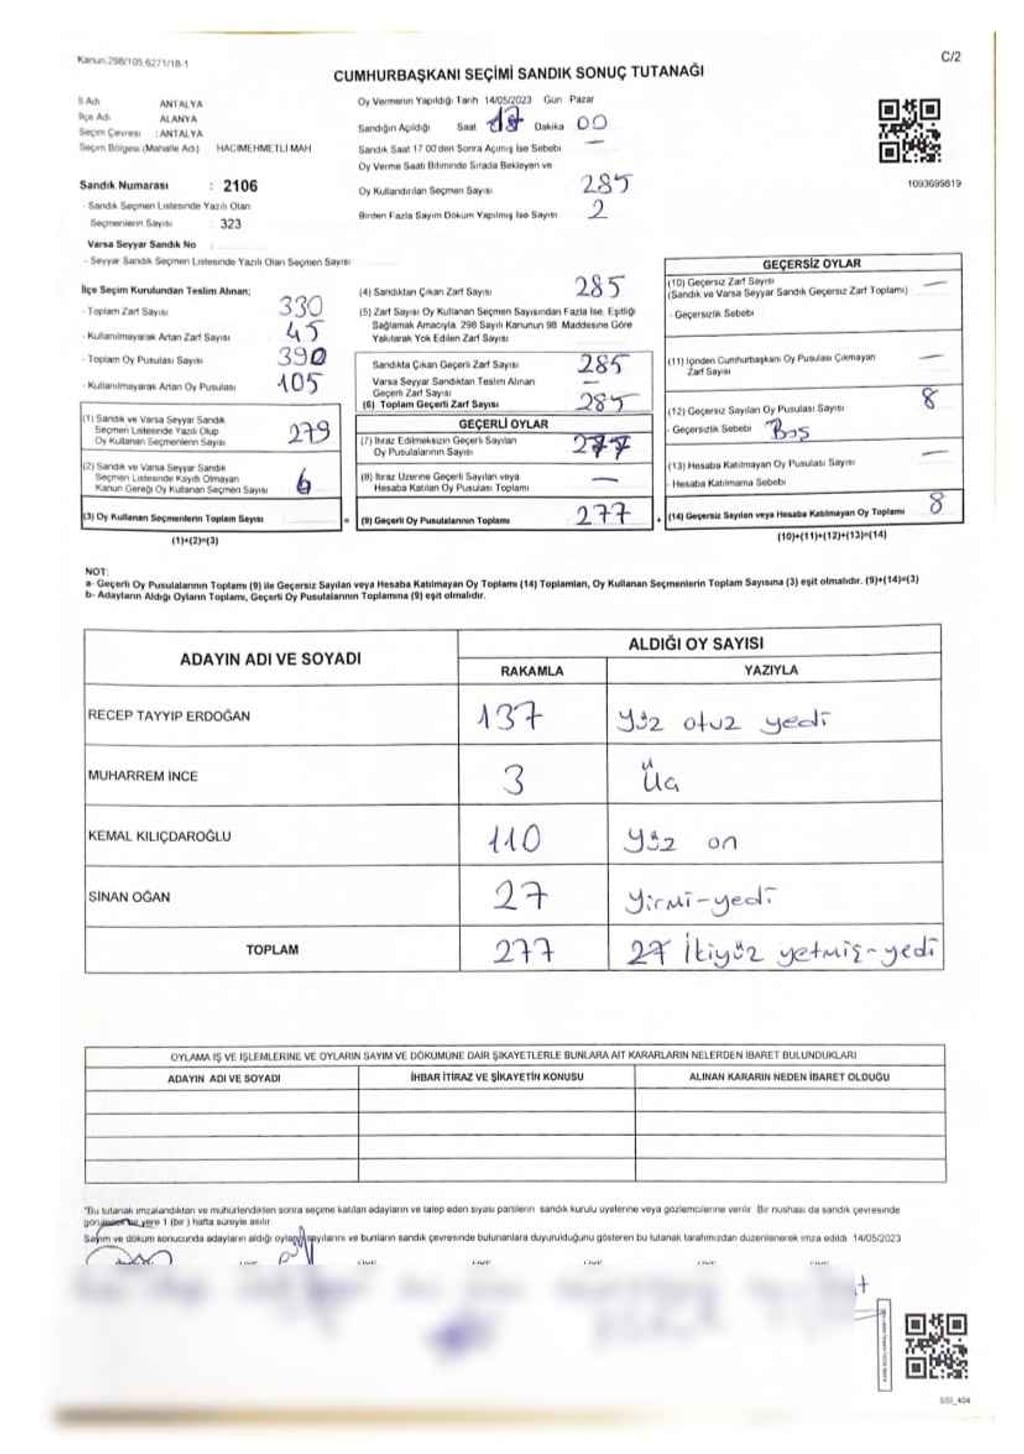 Kanun.298/105,6271/18-1
C/2
CUMHURBAŞKANI SEÇİMİ SANDIK SONUÇ TUTANAĞI
İl Adı ANTALYA
İlçe Adı ALANYA
Seçim Çevresi : ANTALYA
Seçim Bölgesi (Mahalle Adı) HACIMEHMETLİ MAH
Sandık Numarası : 2106
- Sandık Seçmen Listesinde Yazılı Olan
Seçmenlerin Sayısı : 323
Varsa Seyyar Sandık No
- Seyyar Sandık Seçmen Listesinde Yazılı Olan Seçmen Sayısı
Oy Vermenin Yapıldığı Tarih 14/05/2023 Gün Pazar
Sandığın Açıldığı Saat Dakika 00
Sandık Saat 17:00'den Sonra Açılmış İse Sebebi —
Oy Verme Saati Bitiminde Sırada Bekleyen ve
Oy Kullandırılan Seçmen Sayısı 285
Birden Fazla Sayım Döküm Yapılmış İse Sayısı 2
1093695619
İlçe Seçim Kurulundan Teslim Alınan;
- Toplam Zarf Sayısı 330
- Kullanılmayarak Artan Zarf Sayısı 45
- Toplam Oy Pusulası Sayısı 390
- Kullanılmayarak Artan Oy Pusulası 105
(1) Sandık ve Varsa Seyyar Sandık
Seçmen Listesinde Yazılı Olup
Oy Kullanan Seçmenlerin Sayısı 279
(2) Sandık ve Varsa Seyyar Sandık
Seçmen Listesinde Kayıtlı Olmayan
Kanun Gereği Oy Kullanan Seçmen Sayısı 6
(3) Oy Kullanan Seçmenlerin Toplam Sayısı
(1)+(2)=(3)
(4) Sandıktan Çıkan Zarf Sayısı 285
(5) Zarf Sayısı Oy Kullanan Seçmen Sayısından Fazla İse, Eşitliği
Sağlamak Amacıyla, 298 Sayılı Kanunun 98. Maddesine Göre
Yakılarak Yok Edilen Zarf Sayısı
Sandıkta Çıkan Geçerli Zarf Sayısı 285
Varsa Seyyar Sandıktan Teslim Alınan
Geçerli Zarf Sayısı —
(6) Toplam Geçerli Zarf Sayısı 285
GEÇERLİ OYLAR
(7) İtiraz Edilmeksizin Geçerli Sayılan
Oy Pusulalarının Sayısı 277
(8) İtiraz Üzerine Geçerli Sayılan veya
Hesaba Katılan Oy Pusulası Toplamı —
= (9) Geçerli Oy Pusulalarının Toplamı 277
GEÇERSİZ OYLAR
(10) Geçersiz Zarf Sayısı —
(Sandık ve Varsa Seyyar Sandık Geçersiz Zarf Toplamı)
- Geçersizlik Sebebi
(11) İçinden Cumhurbaşkanı Oy Pusulası Çıkmayan
Zarf Sayısı —
(12) Geçersiz Sayılan Oy Pusulası Sayısı 8
- Geçersizlik Sebebi Boş
(13) Hesaba Katılmayan Oy Pusulası Sayısı —
- Hesaba Katılmama Sebebi
+ (14) Geçersiz Sayılan veya Hesaba Katılmayan Oy Toplamı 8
(10)+(11)+(12)+(13)=(14)
NOT:
a- Geçerli Oy Pusulalarının Toplamı (9) ile Geçersiz Sayılan veya Hesaba Katılmayan Oy Toplamı (14) Toplamları, Oy Kullanan Seçmenlerin Toplam Sayısına (3) eşit olmalıdır. (9)+(14)=(3)
b- Adayların Aldığı Oyların Toplamı, Geçerli Oy Pusulalarının Toplamına (9) eşit olmalıdır.
ADAYIN ADI VE SOYADI
ALDIĞI OY SAYISI
RAKAMLA YAZIYLA
RECEP TAYYIP ERDOĞAN 137 yüz otuz yedi
MUHARREM İNCE 3 Üç
KEMAL KILIÇDAROĞLU 110 yüz on
SİNAN OĞAN 27 yirmi-yedi
TOPLAM 277 27 İkiyüz yetmiş-yedi
OYLAMA İŞ VE İŞLEMLERİNE VE OYLARIN SAYIM VE DÖKÜMÜNE DAİR ŞİKAYETLERLE BUNLARA AİT KARARLARIN NELERDEN İBARET BULUNDUKLARI
ADAYIN ADI VE SOYADI İHBAR İTİRAZ VE ŞİKAYETİN KONUSU ALINAN KARARIN NEDEN İBARET OLDUĞU
"Bu tutanak imzalandıktan ve mühürlendikten sonra seçime katılan adayların ve talep eden siyasi partilerin sandık kurulu üyelerine veya gözlemcilerine verilir. Bir nüshası da sandık çevresinde
bir yere 1 (bir) hafta süreyle asılır
Sayım ve döküm sonucunda adayların aldığı oyların sayılarını ve bunların sandık çevresinde bulunanlara duyurulduğunu gösteren bu tutanak tarafımızdan düzenlenerek imza edildi. 14/05/2023